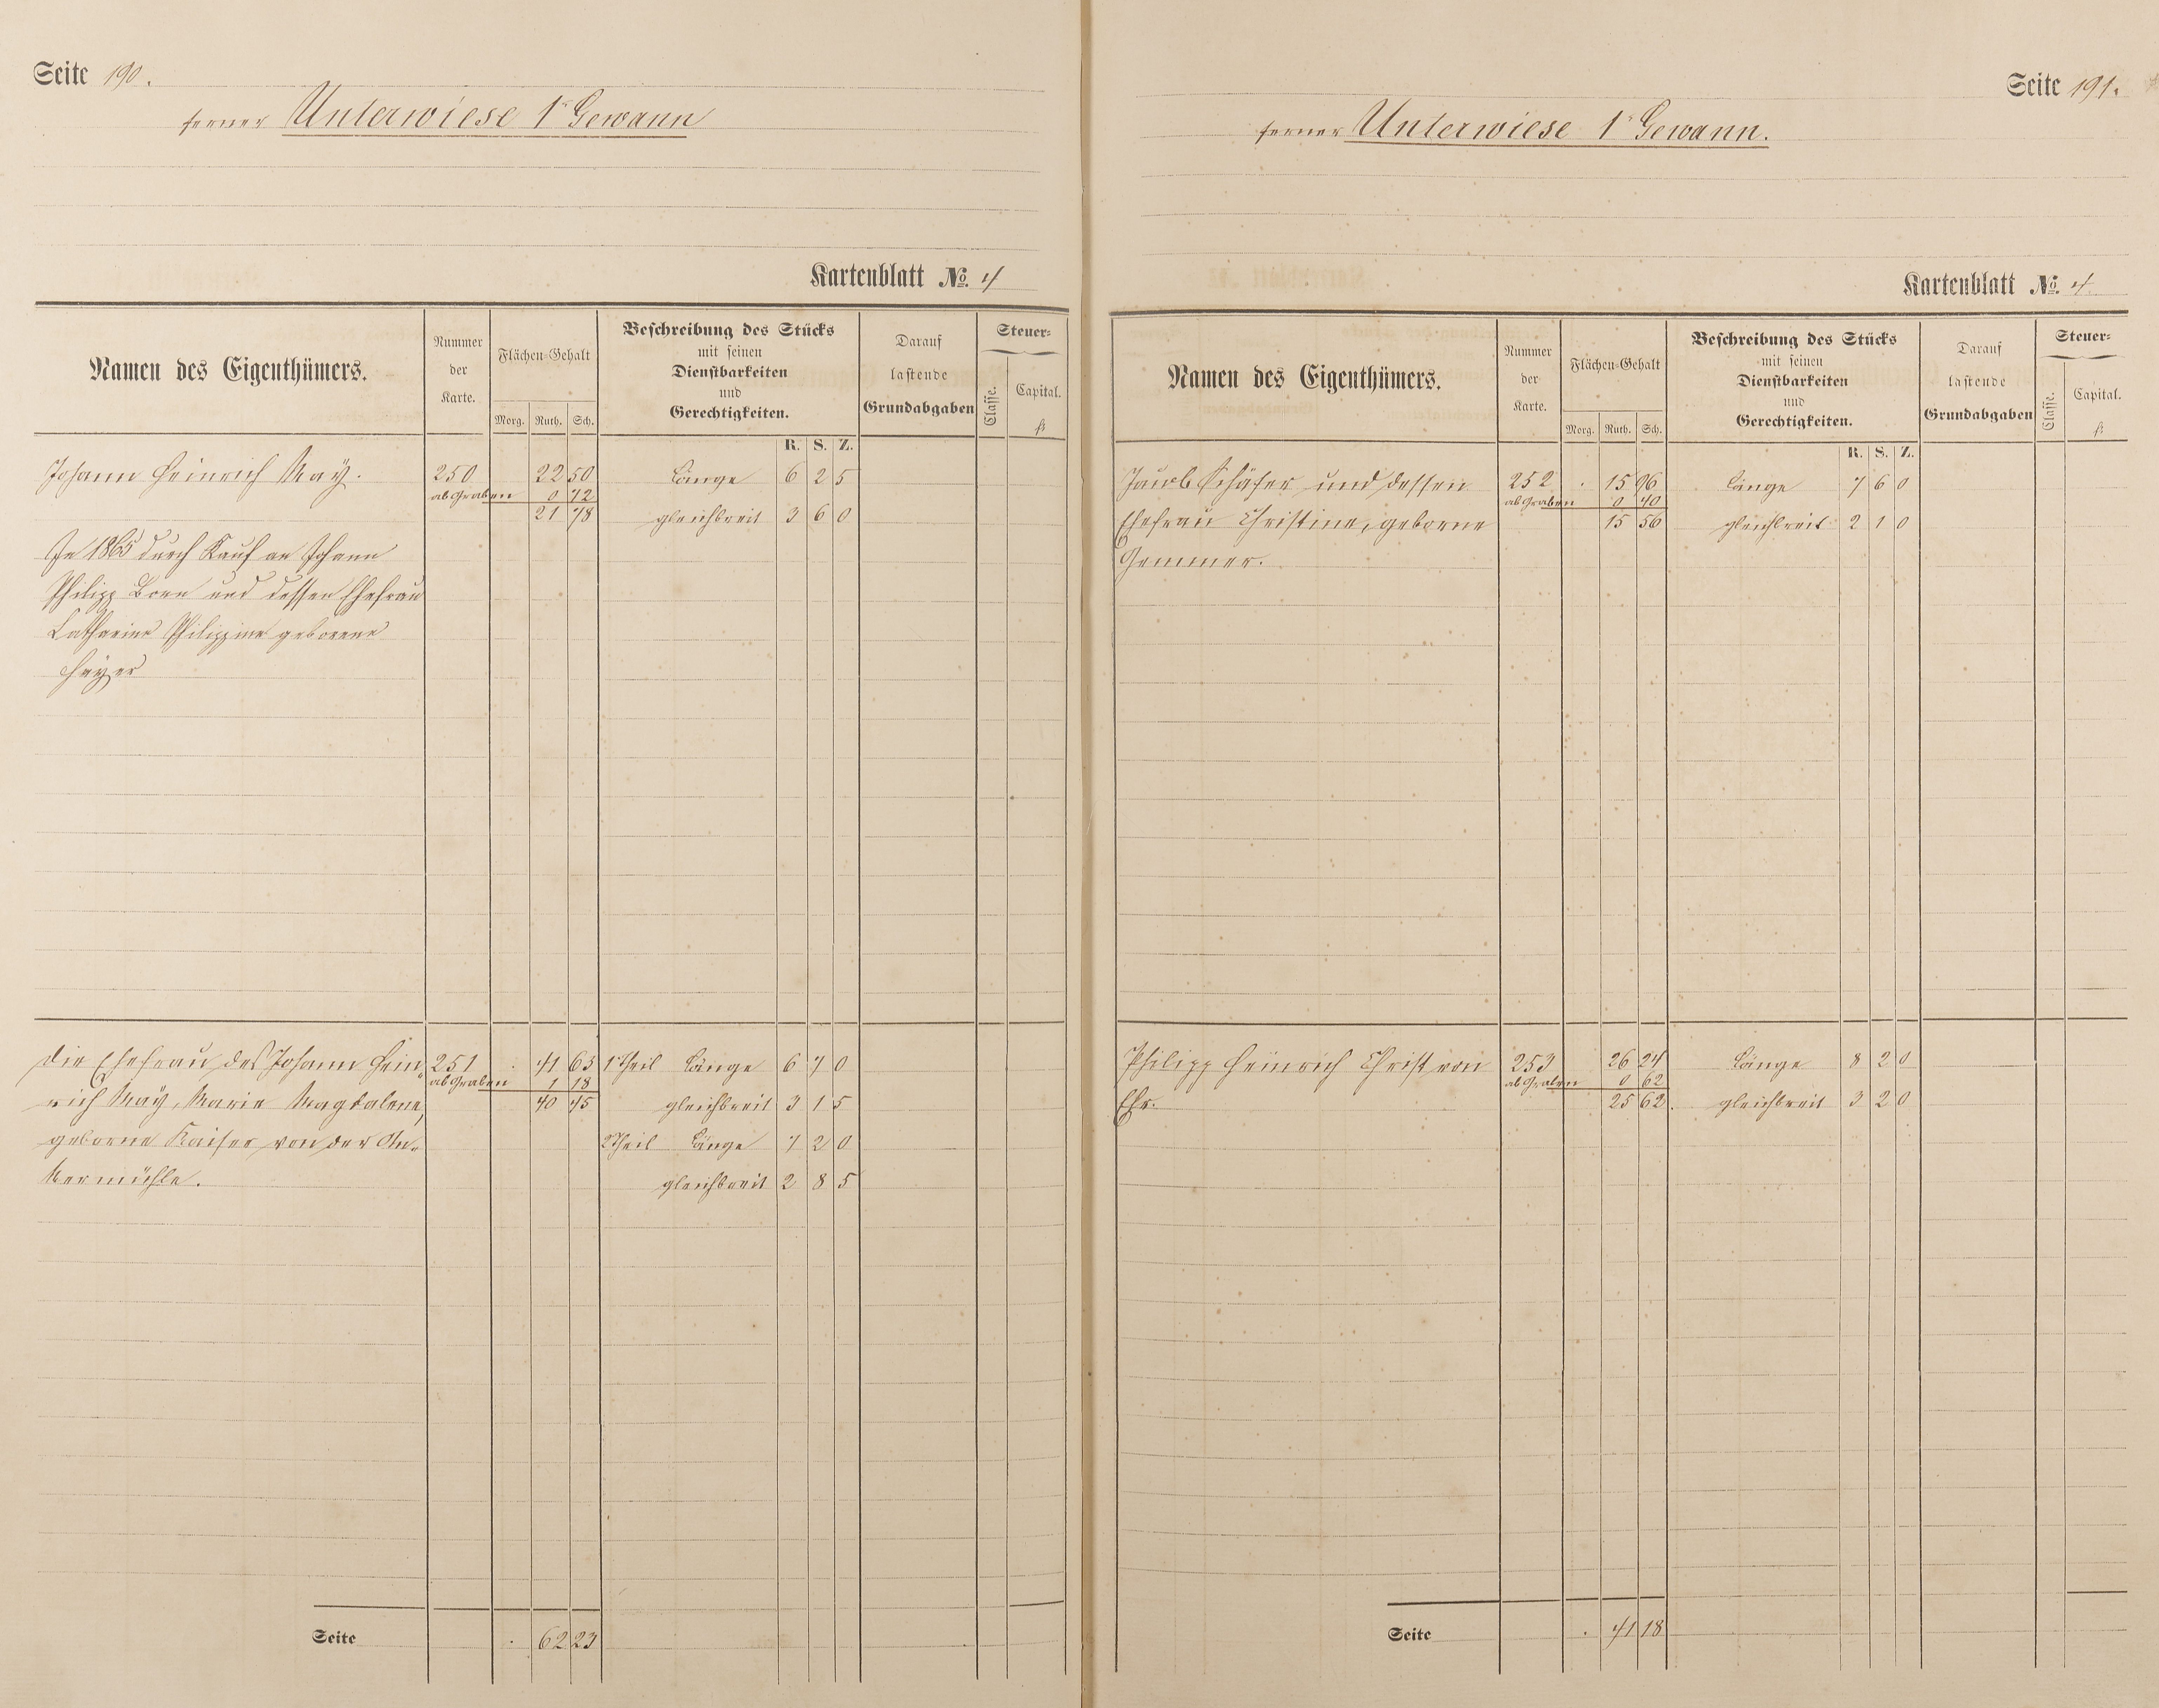 Seite 190.
ferner Unterwiese 1r Gewann
Kartenblatt No. 4
Namen des Eigenthümers.
Nummer der Karte.
Flächen-Gehalt
Morg. Ruth. Sch.
Beschreibung des Stücks
mit seinen
Dienstbarkeiten
und
Gerechtigkeiten.
R. S. Z.
Darauf
lastende
Grundabgaben
Steuer-
Classe.
Capital.
fl.
Johann Heinrich May. 250 22 50 Länge 6 2 5
ab Graben 0 72
21 78 gleichbreit 3 6 0
In 1865 durch Kauf an Johann
Philipp Born und dessen Ehefrau
Catharine Philippine geborene
Die Ehefrau des Johann Hein- 251 . 41 63 1r Theil Länge 6 7 0
ab Graben 1 18
rich May, Marie Magdalene, 40 45 gleichbreit 3 1 5
geborne Kaiser von der An- 2r Theil Länge 7 2 0
kermühle. gleichbreit 2 8 5
Seite . 62 23
Seite 191.
ferner Unterwiese 1r Gewann.
Kartenblatt No. 4
Namen des Eigenthümers.
Nummer der Karte.
Flächen-Gehalt
Morg. Ruth. Sch.
Beschreibung des Stücks
mit seinen
Dienstbarkeiten
und
Gerechtigkeiten.
R. S. Z.
Darauf
lastende
Grundabgaben
Steuer-
Classe.
Capital.
fl.
Jacob Schäfer und dessen 252 . 15 96 Länge 7 6 0
ab Graben 0 40
Ehefrau Christine, geborne 15 56 gleichbreit 2 1 0
Gemmer.
Philipp Heinrich Christ von 253 26 24 Länge 8 2 0
ab Graben 0 62
Ehr. 25 62. gleichbreit 3 2 0
Seite . 41 18